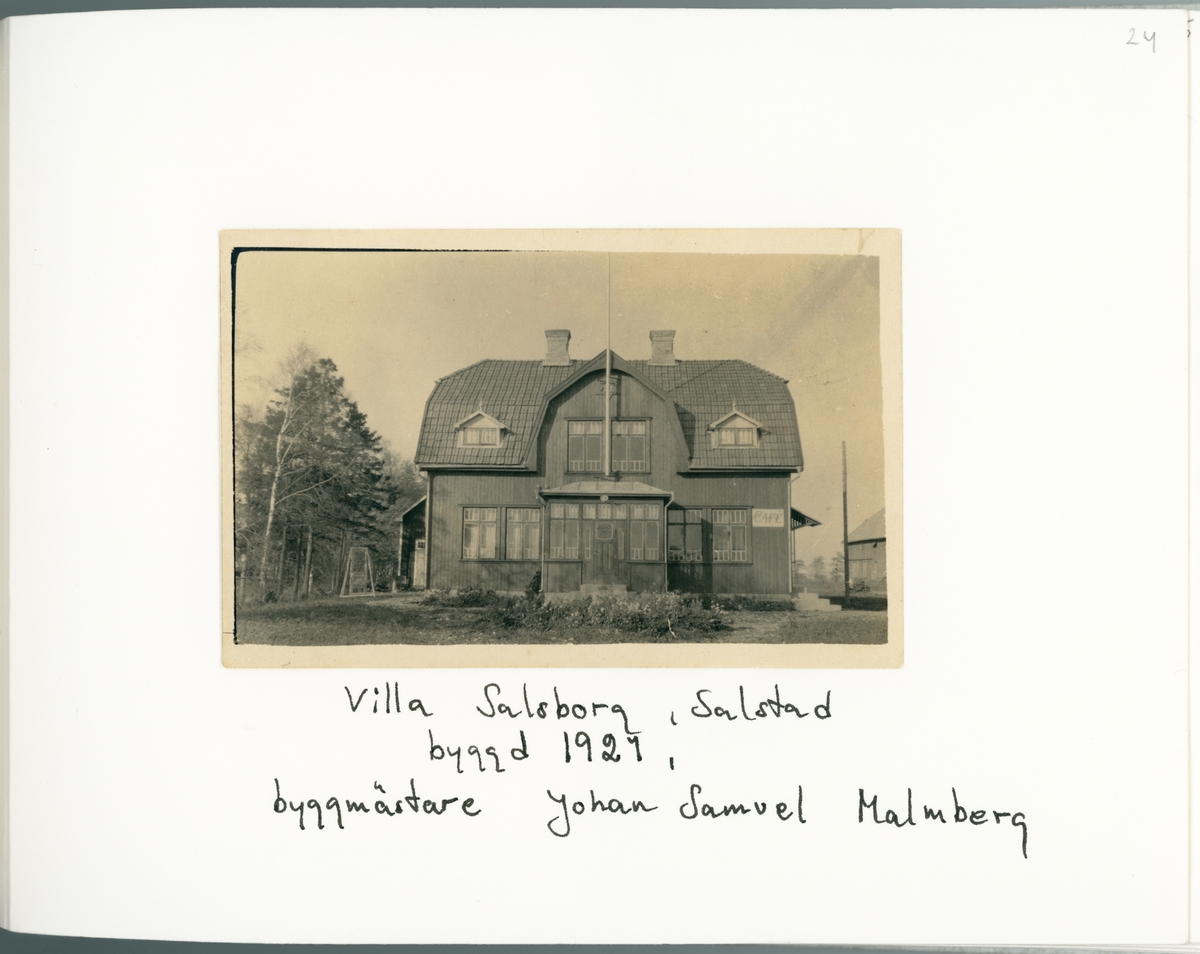 24
CAFÉ
Villa Salsborg, Salstad
byggd 1927,
byggmästare Johan Samuel Malmberg